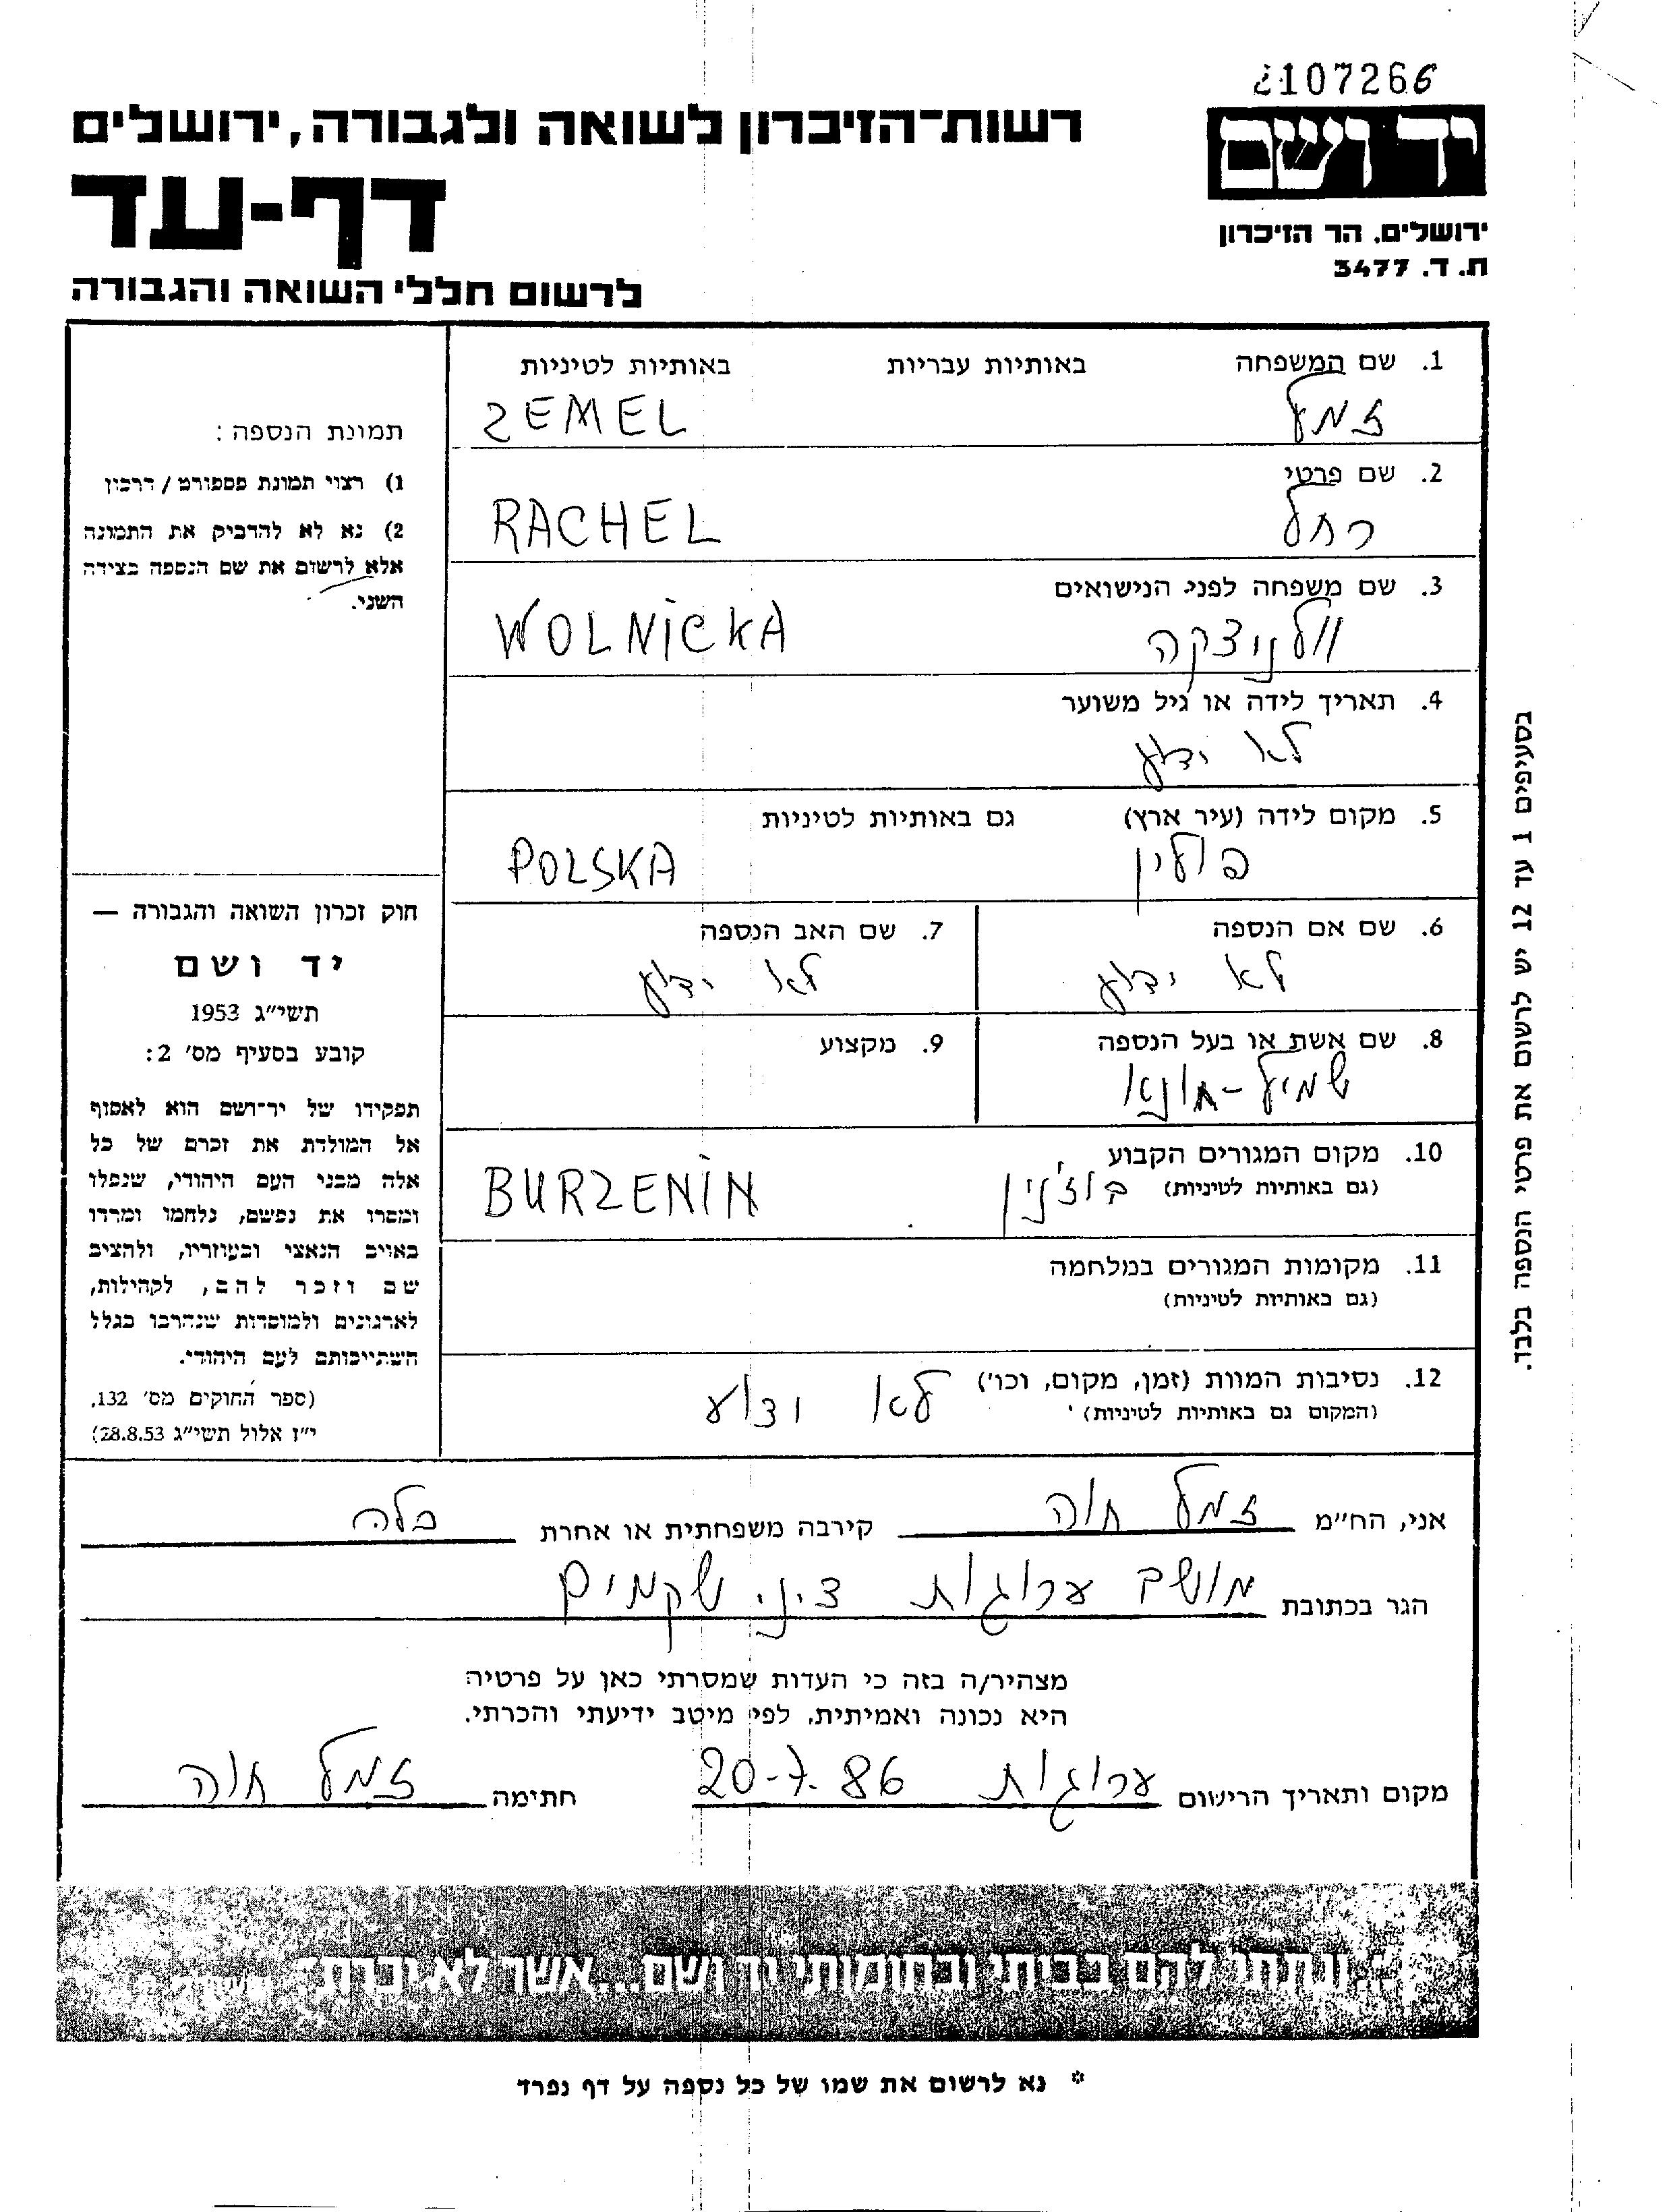 2107266
יד ושם
רשות-הזיכרון לשואה ולגבורה, ירושלים
דף-עד
ירושלים, הר הזיכרון
ת. ד. 3477
לרשום חללי השואה והגבורה
1. שם המשפחה באותיות עבריות באותיות לטיניות
זמל ZEMEL
2. שם פרטי
רחל RACHEL
3. שם משפחה לפני הנישואים
וולניצקה WOLNICKA
4. תאריך לידה או גיל משוער
לא ידוע
5. מקום לידה (עיר ארץ) גם באותיות לטיניות
פולין POLSKA
6. שם אם הנספה 7. שם האב הנספה
לא ידוע לא ידוע
8. שם אשת או בעל הנספה 9. מקצוע
שמיל-חונא
10. מקום המגורים הקבוע
(גם באותיות לטיניות) בוז'נין BURZENIN
11. מקומות המגורים במלחמה
(גם באותיות לטיניות)
12. נסיבות המוות (זמן, מקום, וכו') לא ידוע
(המקום גם באותיות לטיניות)
תמונת הנספה:
1) רצוי תמונת פספורט / דרכון
2) נא לא להדביק את התמונה
אלא לרשום את שם הנספה בצידה
השני.
חוק זכרון השואה והגבורה —
יד ושם
תשי"ג 1953
קובע בסעיף מס' 2:
תפקידו של יד-ושם הוא לאסוף
אל המולדת את זכרם של כל
אלה מבני העם היהודי, שנפלו
ומסרו את נפשם, נלחמו ומרדו
באויב הנאצי ובעוזריו, ולהציב
שם וזכר להם, לקהילות,
לארגונים ולמוסדות שנהרבו בגלל
השתייכותם לעם היהודי.
(ספר החוקים מס' 132,
י"ז אלול תשי"ג 28.8.53)
בסעיפים 1 עד 12 יש לרשום את פרטי הנספה בלבד.
אני, הח"מ זמל חוה קירבה משפחתית או אחרת כלה
הגר בכתובת מושב ערוגות ד.נ. שקמים
מצהיר/ה בזה כי העדות שמסרתי כאן על פרטיה
היא נכונה ואמיתית, לפי מיטב ידיעתי והכרתי.
מקום ותאריך הרישום ערוגות 20-7-86 חתימה זמל חוה
"...ונתתי להם בביתי ובחומותי יד ושם...אשר לא יכרת"
* נא לרשום את שמו של כל נספה על דף נפרד